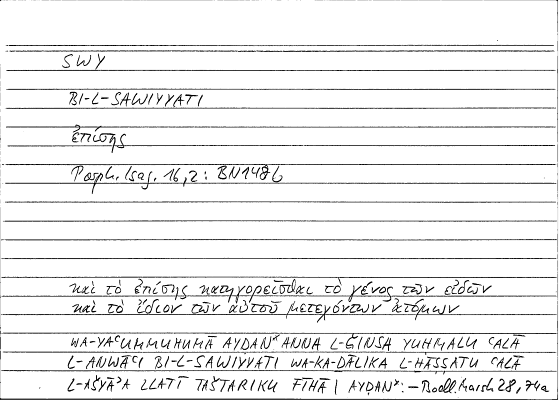 SWY
BI-L-SAWIYYATI
ἐπίσης
Porph. Isag. 16,2: BN148b
καὶ τὸ ἐπίσης κατηγορεῖσθαι τὸ γένος τῶν εἰδῶν
καὶ τὸ ἴδιον τῶν αὐτοῦ μετεχόντων ἀτόμων
WA-YAʿUMMUHUMĀ AYḌANˣ ANNA L-ǦINSA YUḤMALU ʿALĀ
L-ANWĀʿI BI-L-SAWIYYATI WA-KA-ḎĀLIKA L-ḪĀṢṢATU ʿALĀ
L-AŠYĀʾA LLATĪ TAŠTARIKU FĪHĀ | AYḌANˣ: – Bodl. Marsh 28, 74a